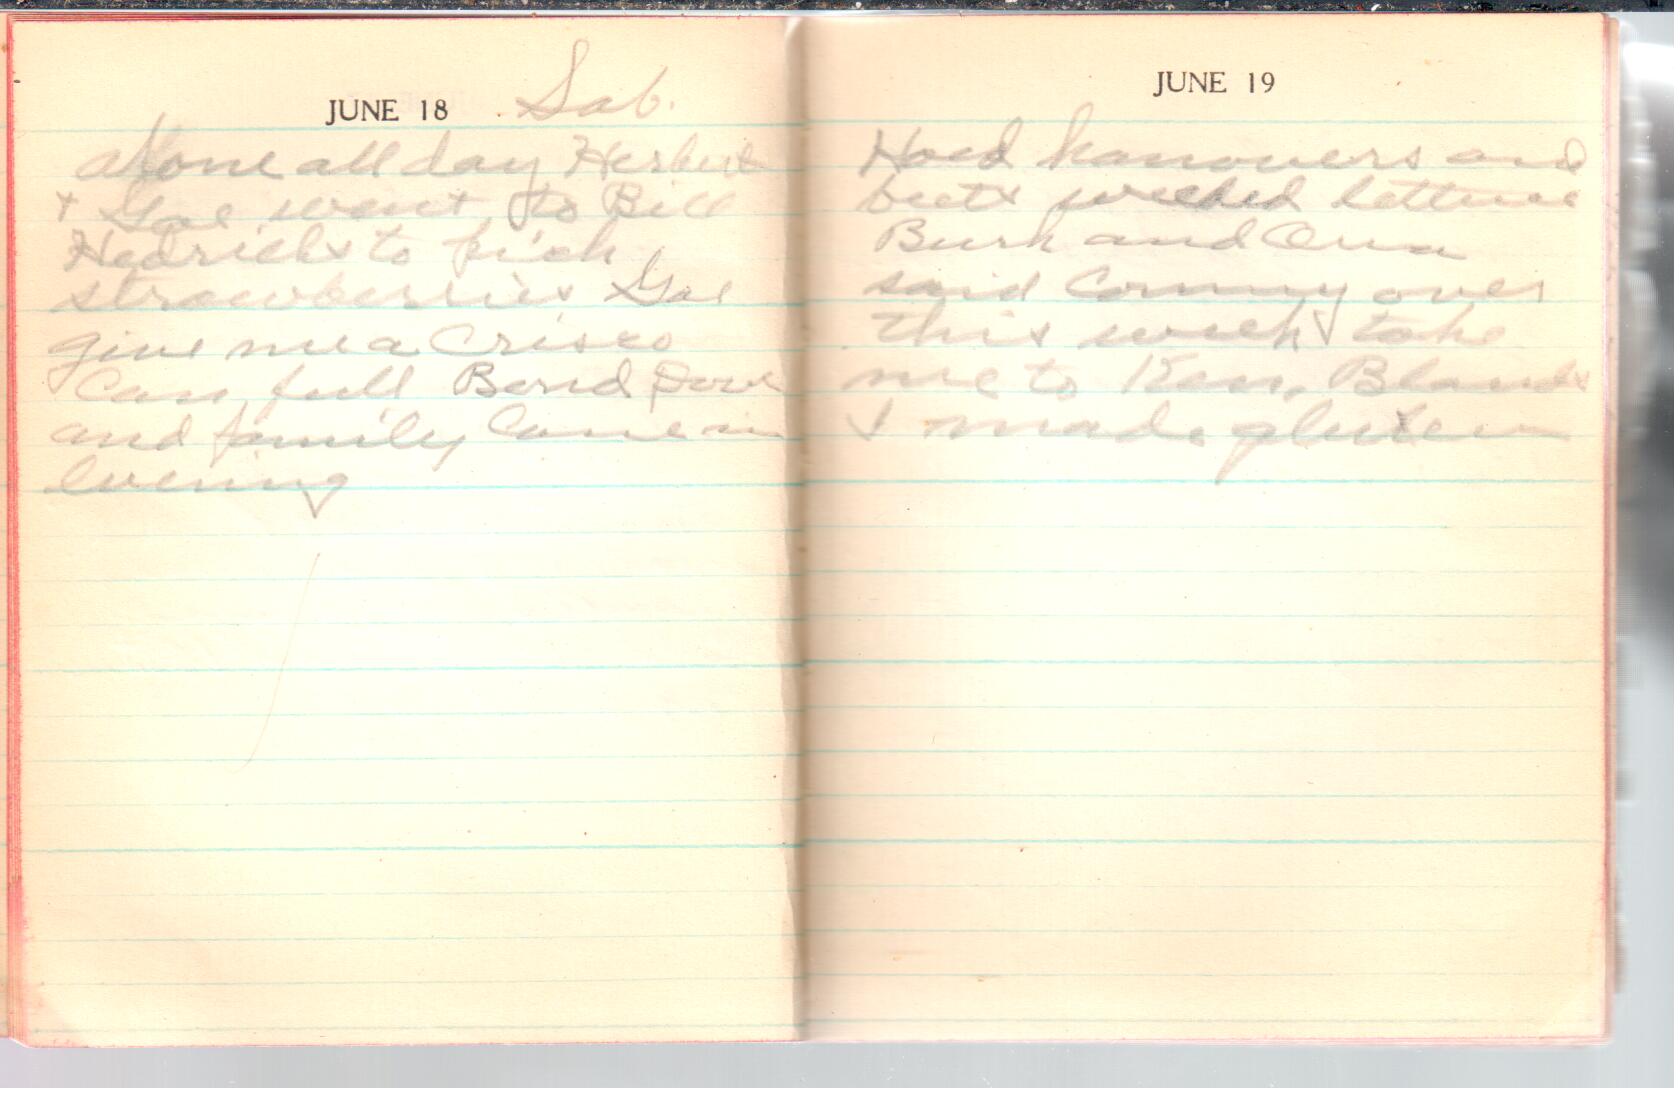 JUNE 18 Sab.
alone all day Herbert
+ Gae went to Bill
Hedricks to pick
strawberries Gae
give me a Crisco
Can full Bond Dove
and family Came in
evening
JUNE 19
Hoed hanovers and
beets weeded lettuce
Burk and Oma
said Comeing over
this week take
me to Ken. Blands
I made gluten